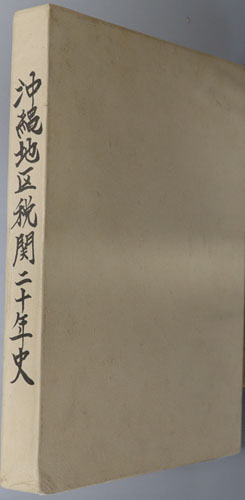 沖縄地区税関二十年史